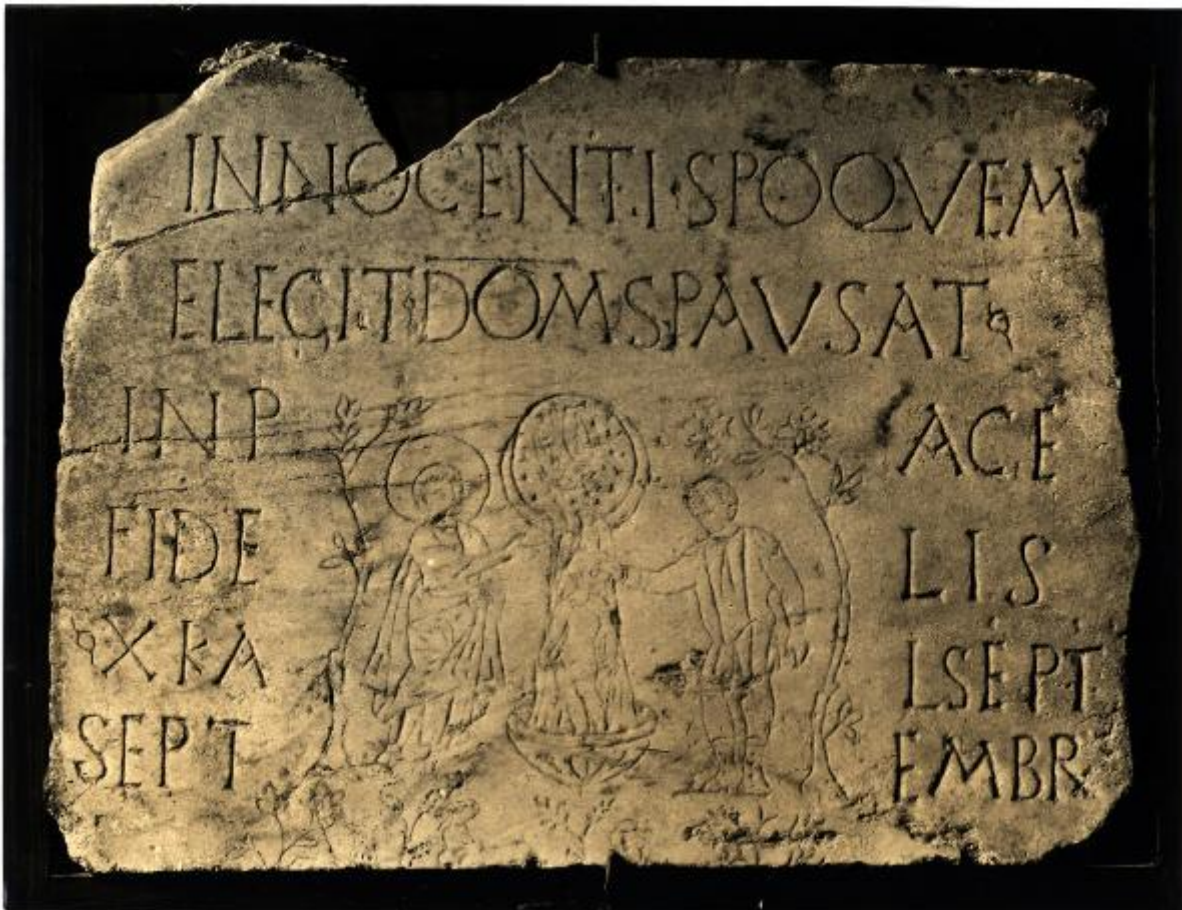 INNOCENTI·SPOQVEM
ELEGIT·DOMSPAVSAT
IN P ACE
FIDE LIS
X KA LSEPT
SEPT EMBR